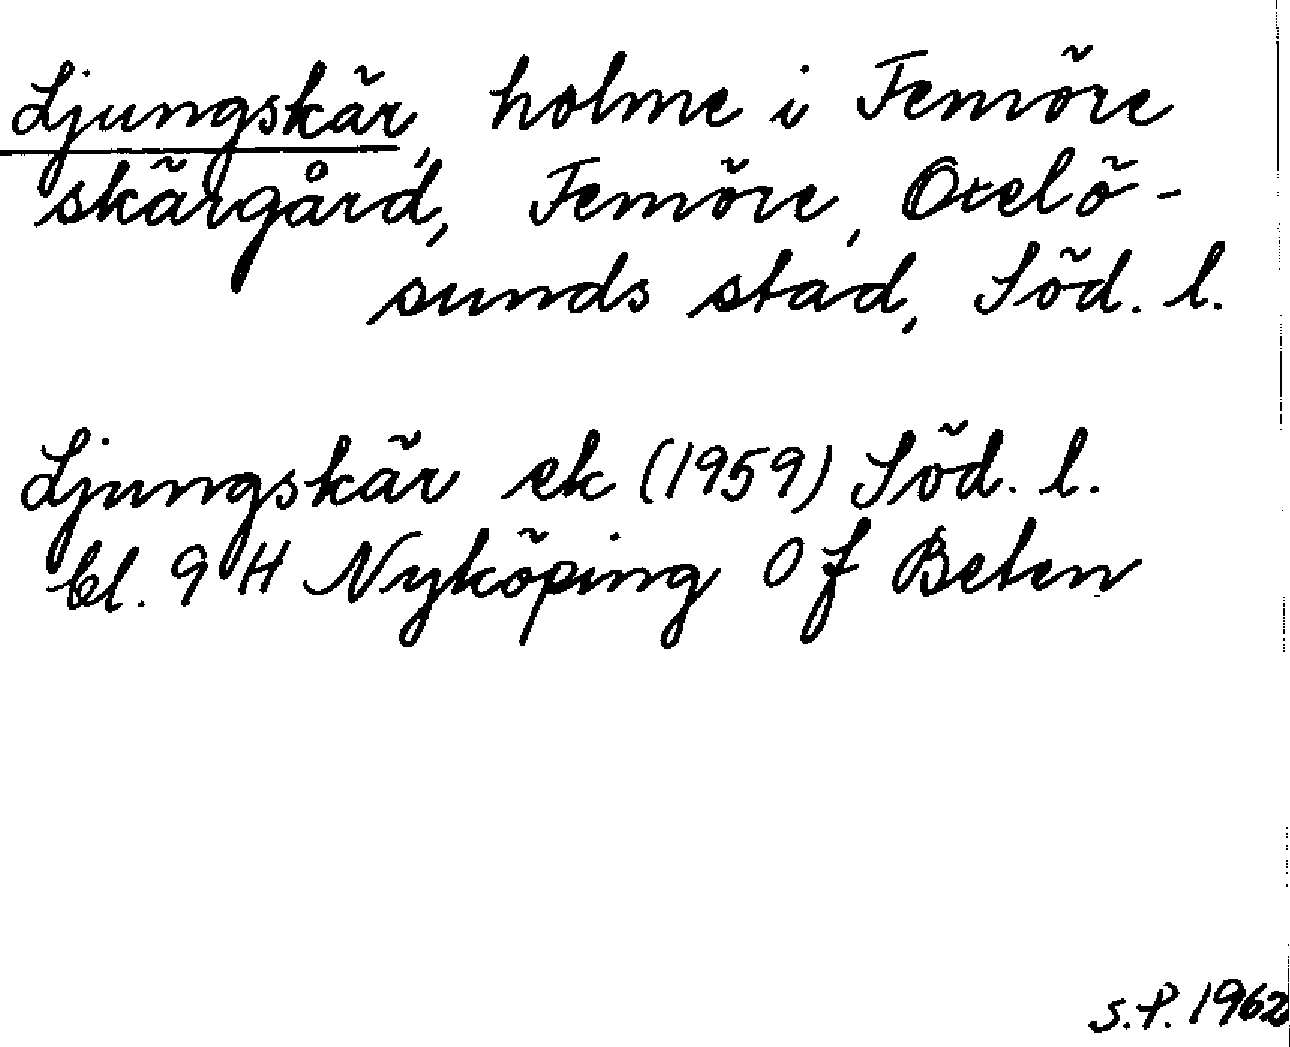 Ljungskär, holme i Femöre
skärgård, Femöre, Oxelö-
sunds stad, Söd. l.
Ljungskär ek (1959) Söd. l.
bl. 9 H Nyköping 0 f Beten
S.P. 1962